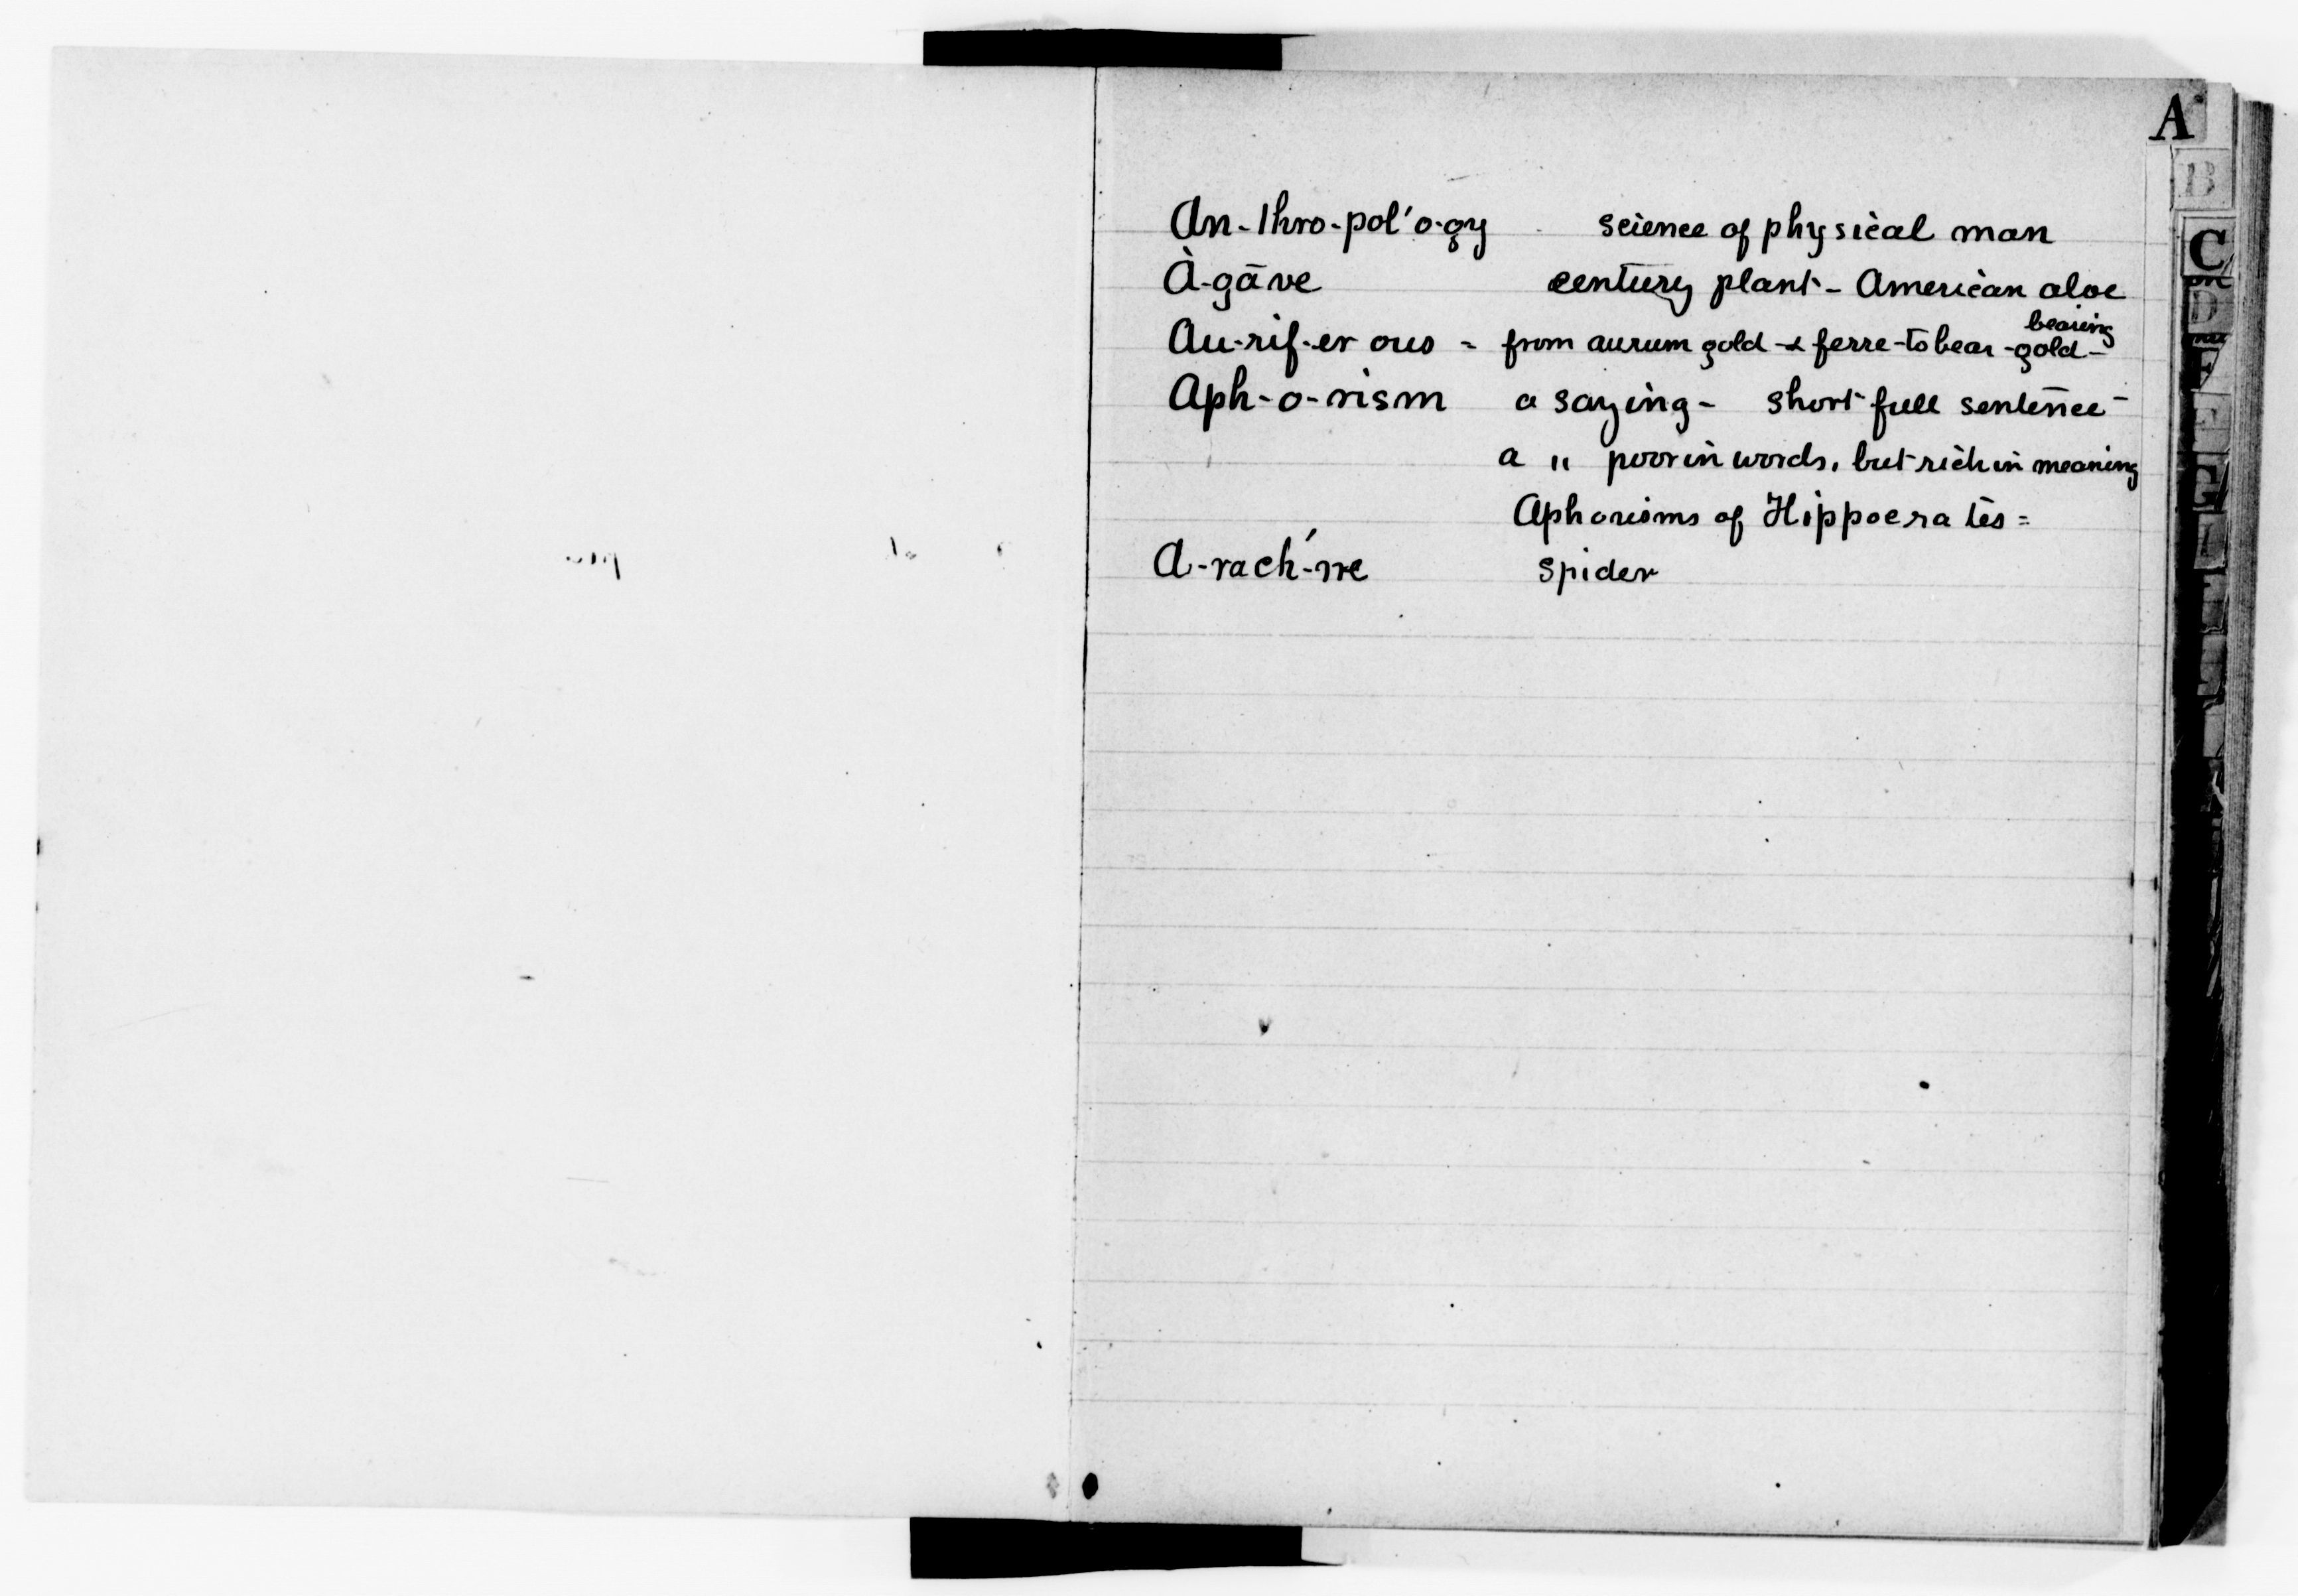 A
B
An-thro-pol'o-gy science of physical man
C
À-gāve century plant - American aloe
D
bearing
Au-rif-er ous = from aurum gold -& ferre-to bear -gold-
Aph-o-rism a saying - short full sentence -
a " poor in words, but rich in meaning
Aphorisms of Hippocrates =
A-rach'-ne spider